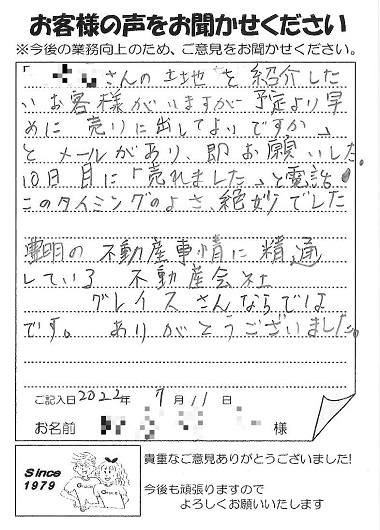 お客様の声をお聞かせください
※今後の業務向上のため、ご意見をお聞かせください。
「 さんの土地を紹介した
いお客様がいますが予定より早
めに売りに出してよいですか」
とメールがあり、即お願いした。
10日目に「売れました」と電話。
このタイミングのよさ、絶妙でした
豊明の不動産事情に精通
している 不動産会社
グレイスさんならでは
です。 ありがとうございました。
ご記入日 2022年 7月 11日
お名前 様
Since
1979
貴重なご意見ありがとうございました!
今後も頑張りますので
よろしくお願いいたします